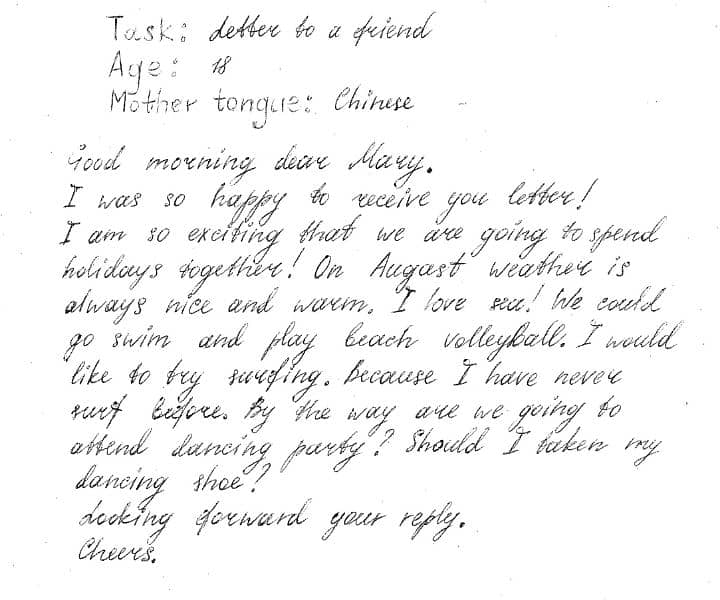 Task: Letter to a friend
Age: 18
Mother tongue: Chinese
Good morning dear Mary.
I was so happy to receive you letter!
I am so exciting that we are going to spend
holidays together! On August weather is
always nice and warm. I love sea! We could
go swim and play beach volleyball. I would
like to try surfing. Because I have never
surf before. By the way are we going to
attend dancing party? Should I taken my
dancing shoe?
Looking forward your reply.
Cheers.